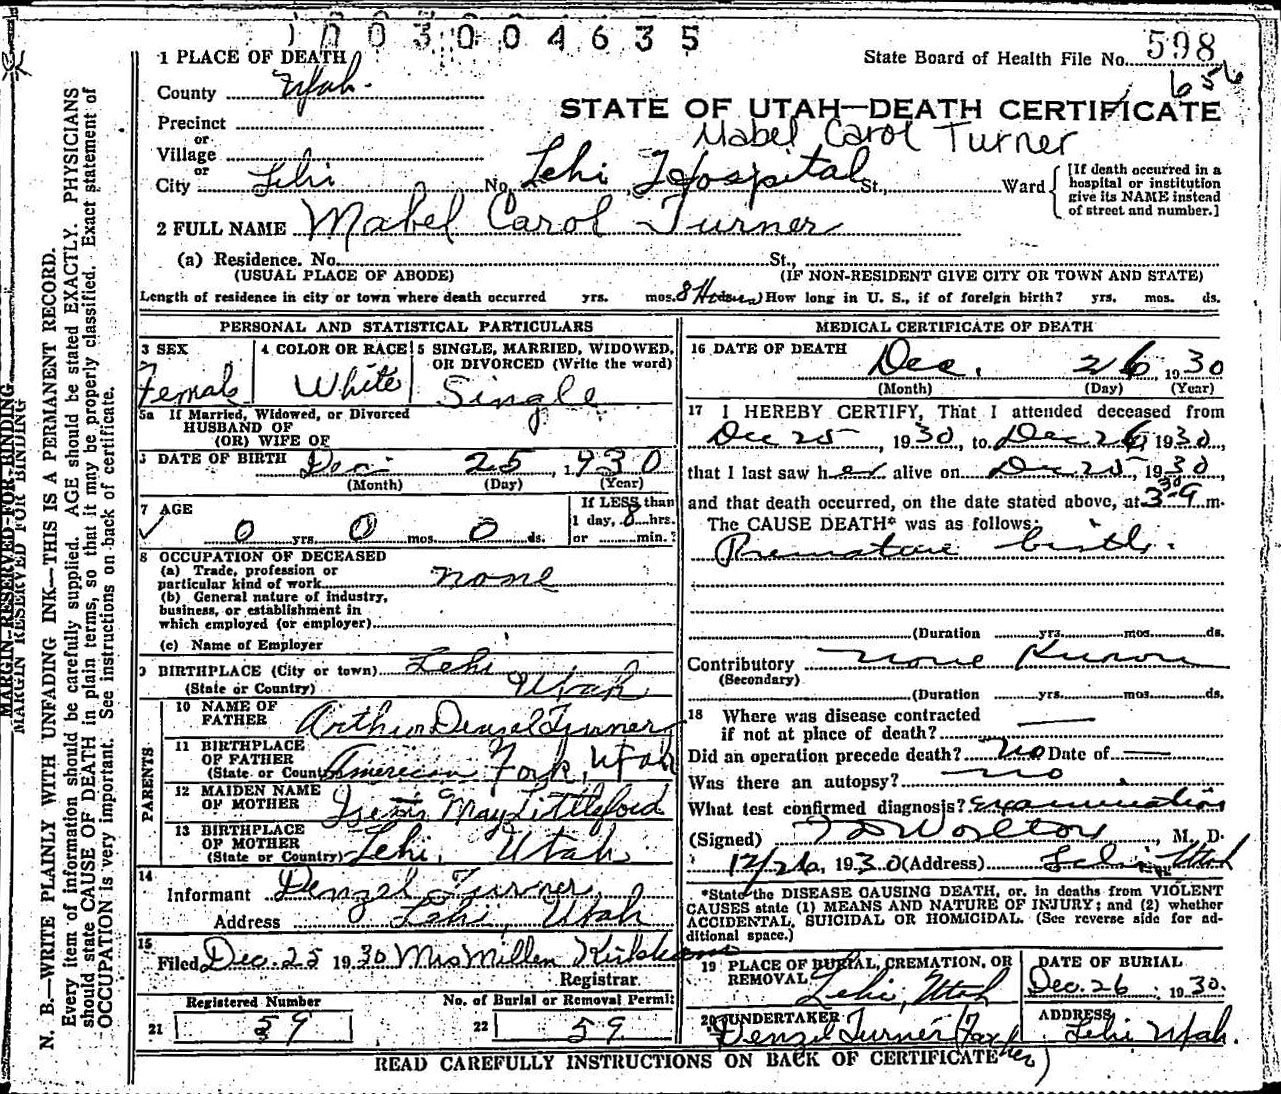 1003004635
1 PLACE OF DEATH
State Board of Health File No. 598
656
County Utah.
STATE OF UTAH—DEATH CERTIFICATE
Precinct
Mabel Carol Turner
or
Village
or
City Lehi No. Lehi Hospital St., Ward
[If death occurred in a hospital or institution give its NAME instead of street and number.]
2 FULL NAME Mabel Carol Turner
(a) Residence. No. St.,
(USUAL PLACE OF ABODE) (IF NON-RESIDENT GIVE CITY OR TOWN AND STATE)
Length of residence in city or town where death occurred yrs. mos. 8 Hours How long in U. S., if of foreign birth? yrs. mos. ds.
PERSONAL AND STATISTICAL PARTICULARS
3 SEX 4 COLOR OR RACE 5 SINGLE, MARRIED, WIDOWED,
OR DIVORCED (Write the word)
Female White Single
5a If Married, Widowed, or Divorced
HUSBAND OF
(OR) WIFE OF
DATE OF BIRTH Dec 25, 1930
(Month) (Day) (Year)
7 AGE If LESS than
0 yrs. 0 mos. 0 ds. 1 day, 8 hrs.
or min.?
8 OCCUPATION OF DECEASED
(a) Trade, profession or
particular kind of work none
(b) General nature of industry,
business, or establishment in
which employed (or employer)
(c) Name of Employer
9 BIRTHPLACE (City or town) Lehi
(State or Country) Utah
PARENTS
10 NAME OF
FATHER Arthur Denzel Turner
11 BIRTHPLACE
OF FATHER
(State or Country) American Fork, Utah
12 MAIDEN NAME
OF MOTHER May Littleford
13 BIRTHPLACE
OF MOTHER
(State or Country) Lehi, Utah
14
Informant Denzel Turner
Address Lehi, Utah
15
Filed Dec. 25 1930 Mrs Millen
Registrar.
Registered Number No. of Burial or Removal Permit
21 59 22 59
MEDICAL CERTIFICATE OF DEATH
16 DATE OF DEATH
Dec. 26 1930
(Month) (Day) (Year)
17 I HEREBY CERTIFY, That I attended deceased from
Dec 25, 1930, to Dec 26 1930,
that I last saw her alive on Dec 25, 1930,
and that death occurred, on the date stated above, at 3 30 a m.
The CAUSE DEATH* was as follows:
Premature birth.
(Duration yrs. mos. ds.
Contributory none Known
(Secondary)
(Duration yrs. mos. ds.
18 Where was disease contracted
if not at place of death?
Did an operation precede death? no Date of
Was there an autopsy? no
What test confirmed diagnosis? examination
(Signed) Worlton, M. D.
12/26, 1930 (Address) Lehi Utah
*State the DISEASE CAUSING DEATH, or, in deaths from VIOLENT
CAUSES state (1) MEANS AND NATURE OF INJURY; and (2) whether
ACCIDENTAL, SUICIDAL OR HOMICIDAL. (See reverse side for ad-
ditional space.)
19 PLACE OF BURIAL, CREMATION, OR
REMOVAL Lehi, Utah
DATE OF BURIAL
Dec. 26, 1930.
20 UNDERTAKER
Denzel Turner (Father)
ADDRESS
Lehi Utah.
READ CAREFULLY INSTRUCTIONS ON BACK OF CERTIFICATE
MARGIN RESERVED FOR BINDING
MARGIN RESERVED FOR BINDING
N. B.—WRITE PLAINLY WITH UNFADING INK—THIS IS A PERMANENT RECORD.
Every item of information should be carefully supplied. AGE should be stated EXACTLY. PHYSICIANS
should state CAUSE OF DEATH in plain terms, so that it may be properly classified. Exact statement of
OCCUPATION is very important. See instructions on back of certificate.